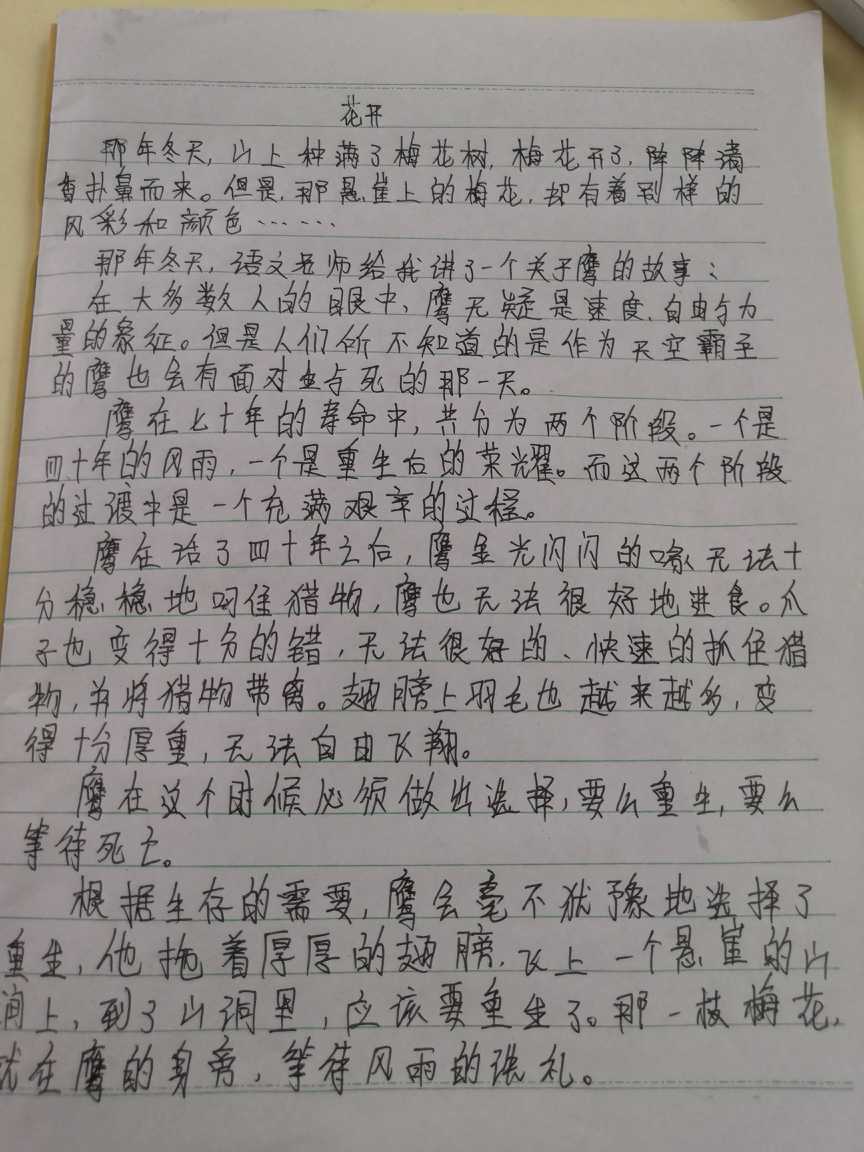 花开
那年冬天，山上种满了梅花树，梅花开了，阵阵清
香扑鼻而来。但是，那悬崖上的梅花，却有着别样的
风彩和颜色……
那年冬天，语文老师给我讲了一个关于鹰的故事：
在大多数人的眼中，鹰无疑是速度、自由与力
量的象征。但是人们所不知道的是作为天空霸主
的鹰也会有面对生与死的那一天。
鹰在七十年的寿命中，共分为两个阶段。一个是
四十年的风雨，一个是重生后的荣耀。而这两个阶段
的过渡中是一个充满艰辛的过程。
鹰在活了四十年之后，鹰金光闪闪的喙无法十
分稳稳地叼住猎物，鹰也无法很好地进食。爪
子也变得十分的错，无法很好的、快速的抓住猎
物，并将猎物带离。翅膀上羽毛也越来越多，变
得十分厚重，无法自由飞翔。
鹰在这个时候必须做出选择，要么重生，要么
等待死亡。
根据生存的需要，鹰会毫不犹豫地选择了
重生，他拖着厚厚的翅膀，飞上一个悬崖的山
洞上，到了山洞里，应该要重生了。那一枝梅花，
就在鹰的身旁，等待风雨的洗礼。